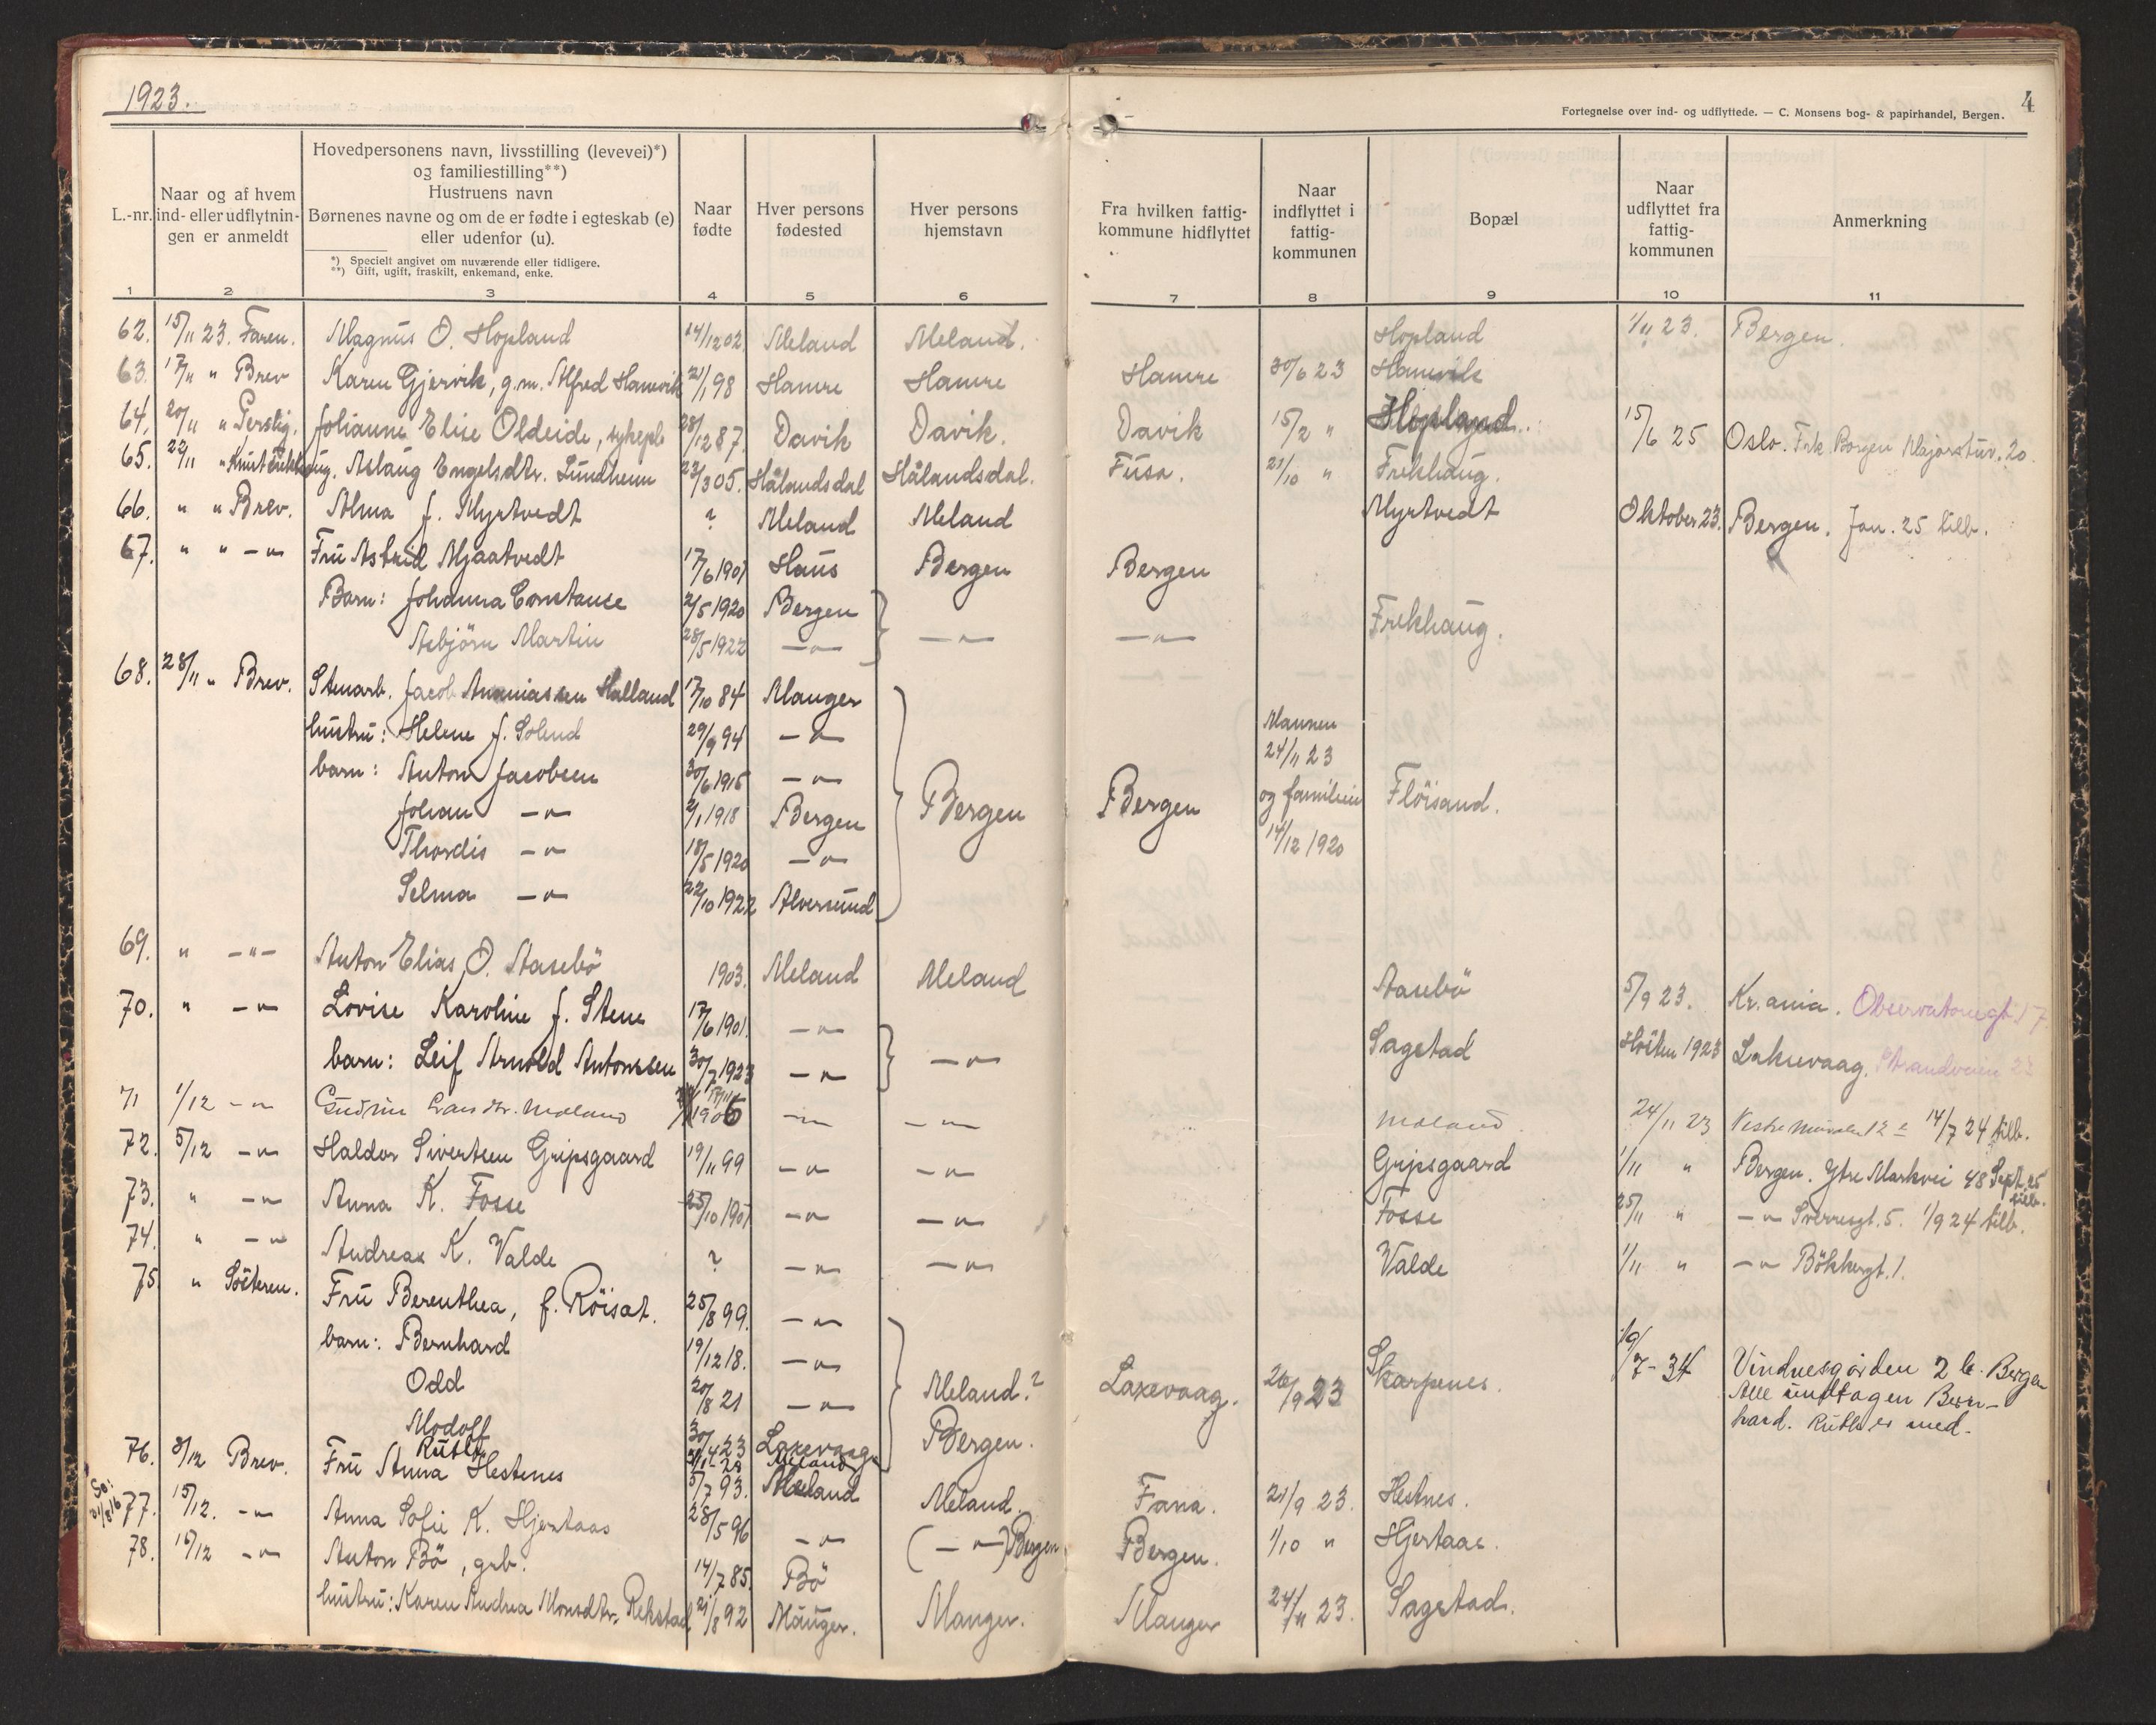 1923.
4
Fortegnelse over ind- og udflyttede. — C. Monsens bog- & papirhandel, Bergen.
L.-nr.
Naar og af hvem ind- eller udflytnin- gen er anmeldt
Hovedpersonens navn, livsstilling (levevei)*)
og familiestilling**)
Hustruens navn
Børnenes navne og om de er fødte i egteskab (e)
eller udenfor (u).
*) Specielt angivet om nuværende eller tidligere.
**) Gift, ugift, fraskilt, enkemand, enke.
Naar fødte
Hver persons fødested
Hver persons hjemstavn
Fra hvilken fattig- kommune hidflyttet
Naar indflyttet i fattig- kommunen
Bopæl
Naar udflyttet fra fattig- kommunen
Anmerkning
1 2 3 4 5 6 7 8 9 10 11
62. 15/11 23. Faren. Magnus O. Hopland 14/12 02. Meland Meland. Hopland 1/11 23. Bergen.
63. 17/11 " Brev Karen Gjervik, g.m. Alfred Hanevik 21/1 98 Hamre Hamre Hamre 30/6 23 Hanevik
64. 20/11 " Perslig. Johanne Elise Oldeide, sykepl 28/12 87. Davik Davik. Davik 15/2 " Hopland. 15/6 25 Oslo. Frk. Borgen Majorstuv. 20.
65. 22/11 " Knut Frekhaug. Aslaug Engelsdtr. Lundheim 23/3 05. Hålandsdal Hålandsdal. Fusa. 21/10 " Frekhaug.
66. " " Brev. Alma f. Myrtvedt ? Meland Meland Myrtvedt Oktober 23. Bergen. Jan. 25 tilb.
67. " " — " — Fru Astrid Mjaatvedt 17/6 1901 Haus Bergen Bergen
Barn: Johanna Constance 2/5 1920 Bergen
Asbjörn Martin 28/5 1922 — " — — " — — " — Frekhaug.
68. 28/11 " Brev. Stenarb. Jacob Ananiassen Halland 17/10 84 Manger
hustru: Helene f. Solend 29/9 94 — " — Mannen
24/11 23
barn: Anton Jacobsen 30/6 1915 — " — Bergen Bergen og familien Flöisand.
Johan — " — 2/1 1918 Bergen
Thordis — " — 18/5 1920 — " — 14/12 1920
Selma — " — 22/10 1922 Alversund
69. " — " — Anton Elias O. Aasebö 1903. Meland Meland Aasebö 5/9 23. Kr.ania. Observatoriegt. 17.
70. " — " — Lovise Karoline f. Stene 17/6 1901. — " —
barn: Leif Arnold Antonsen 30/7 1923 — " — — " — Sagstad Hösten 1923 Laksevaag. Strandveien 23
71 1/12 — " — Gudrun Larsdtr. Meland 1906 — " — — " — Meland. 24/11 23 Vestre 12 14/7 24 tilb.
72. 5/12 — " — Haldor Sivertsen Gripsgaard 19/11 99 — " — — " — Gripsgaard 1/11 " Bergen. Ytre Markvei 48 Sept. 25 tilb.
73. " — " — Anna K. Fosse 25/10 1901 — " — — " — Fosse 25/11 " — " — Sverresgt. 5. 1/9 24 tilb.
74. " — " — Andreas K. Valde ? — " — — " — Valde 1/11 " — " — Bökkergt. 1.
75. " Söstren. Fru Berenthea, f. Röisat. 25/8 99. — " —
barn: Bernhard 19/12 18. — " —
Odd 20/8 21 — " — Meland.? Laxevaag. 26/9 23 Skarpenes. 19/7 - 34 Vindnesgården 2 b. Bergen
Alle undtagen Bern-
hard. Ruth er med.
Modolf 30/4 23 Laxevaag Bergen.
Ruth 31/1 - 28 Meland
76. 8/12 Brev. Fru Anna Hestnes 5/7 93. Meland Meland. Fana. 21/9 23. Hestnes.
So: 31/8 16
77. 15/12. — " — Anna Sofie K. Hjertaas 28/5 96 — " — ( — " — ) Bergen Bergen. 1/10 " Hjertaas.
78. 16/12 — " — Anton Bö, grb. 14/7 85. Bö
hustru: Karen Andrea Monsdtr. Rekstad 21/8 92 Manger. Manger. Manger 24/11 23. Sagstad.